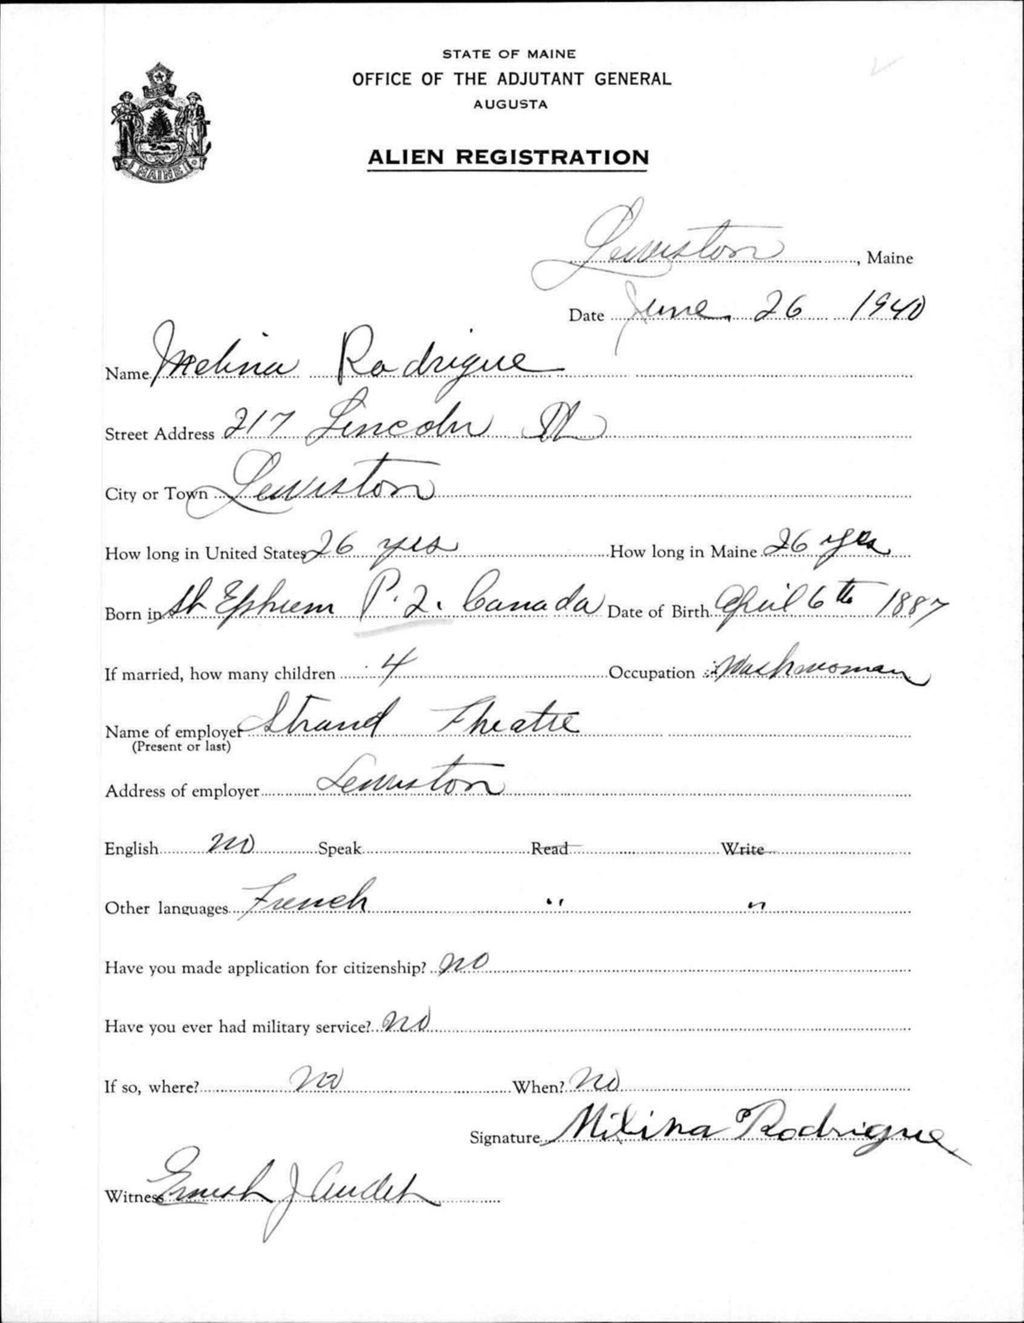 STATE OF MAINE
OFFICE OF THE ADJUTANT GENERAL
AUGUSTA
ALIEN REGISTRATION
MAINE
Lewiston, Maine
Date June 26 1940
Name Melina Rodrigue
Street Address 217 Lincoln St
City or Town Lewiston
How long in United States 26 yrs How long in Maine 26 yrs
Born in St Ephrem P.Q. Canada Date of Birth April 6th 1887
If married, how many children 4 Occupation Washwoman
Name of employer Strand Theatre
(Present or last)
Address of employer Lewiston
English no Speak Read Write
Other languages French " "
Have you made application for citizenship? no
Have you ever had military service? no
If so, where? no When? no
Signature Milina Rodrigue
Witness Ernest J Audet